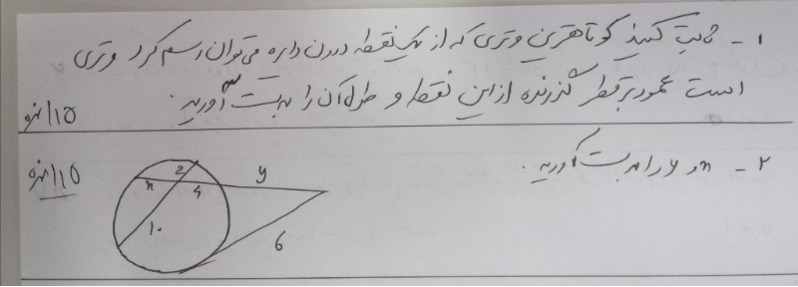 ۱- ثابت کنید کوتاهترین وتری که از یک نقطه درون دایره می‌توان رسم کرد وتری
است عمود بر قطر گذرنده از این نقطه و طول آن را بدست آورید.
۱/۵ نمره
۲- x و y را بدست آورید.
۱/۵ نمره
2
x
4
y
۱۰
6